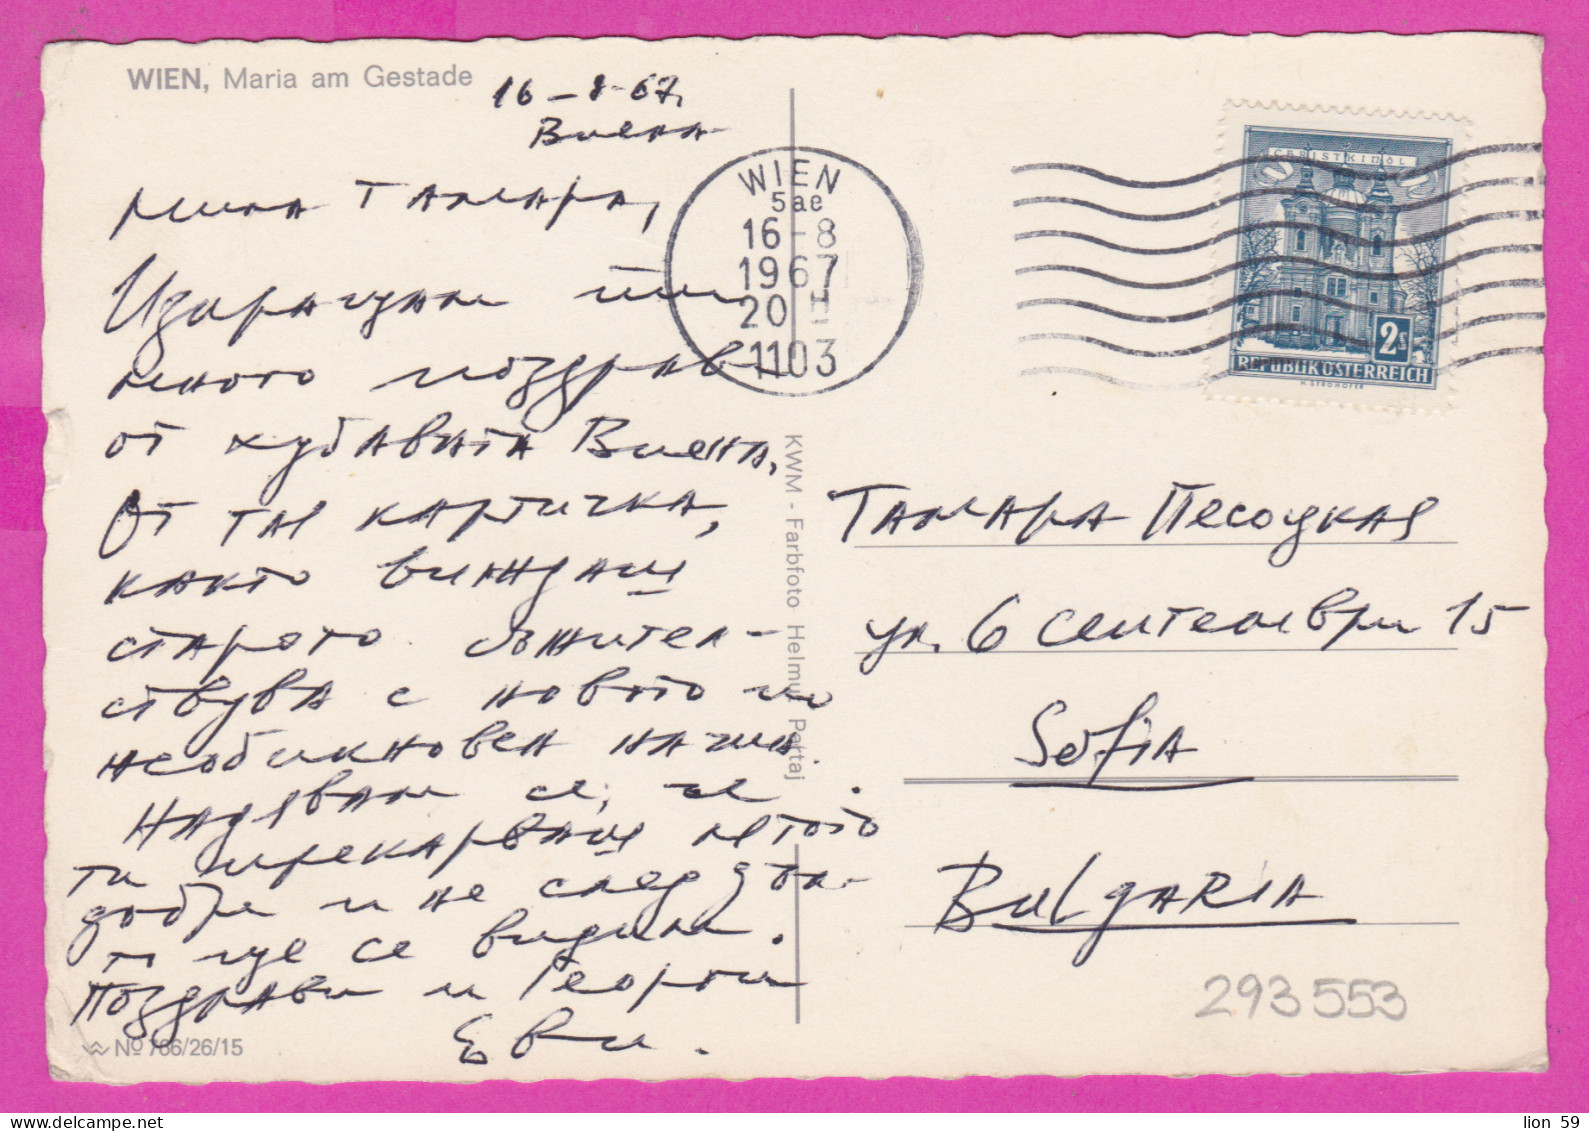 WIEN, Maria am Gestade
16-8-67,
Виена
Мила Тамара,
Изпращам ти
много поздрави
от хубавата Виена.
От тая картичка,
както виждаш
старото съжител-
ствува с новото по
необикновен начин.
Надявам се, че
ти прекарваш лятото
добре и не след дъл-
го ще се видим.
Поздрави и Георги
Еви.
№ 766/26/15
KWM - Farbfoto Helmut Partaj
WIEN
5ae
16-8
1967
20H
1103
CHRISTKINDL
2S
REPUBLIK ÖSTERREICH
H. STROHOFER
Тамара Песоцкая
ул. 6 септември 15
Sofia
BulgARIA
293553
lion 59